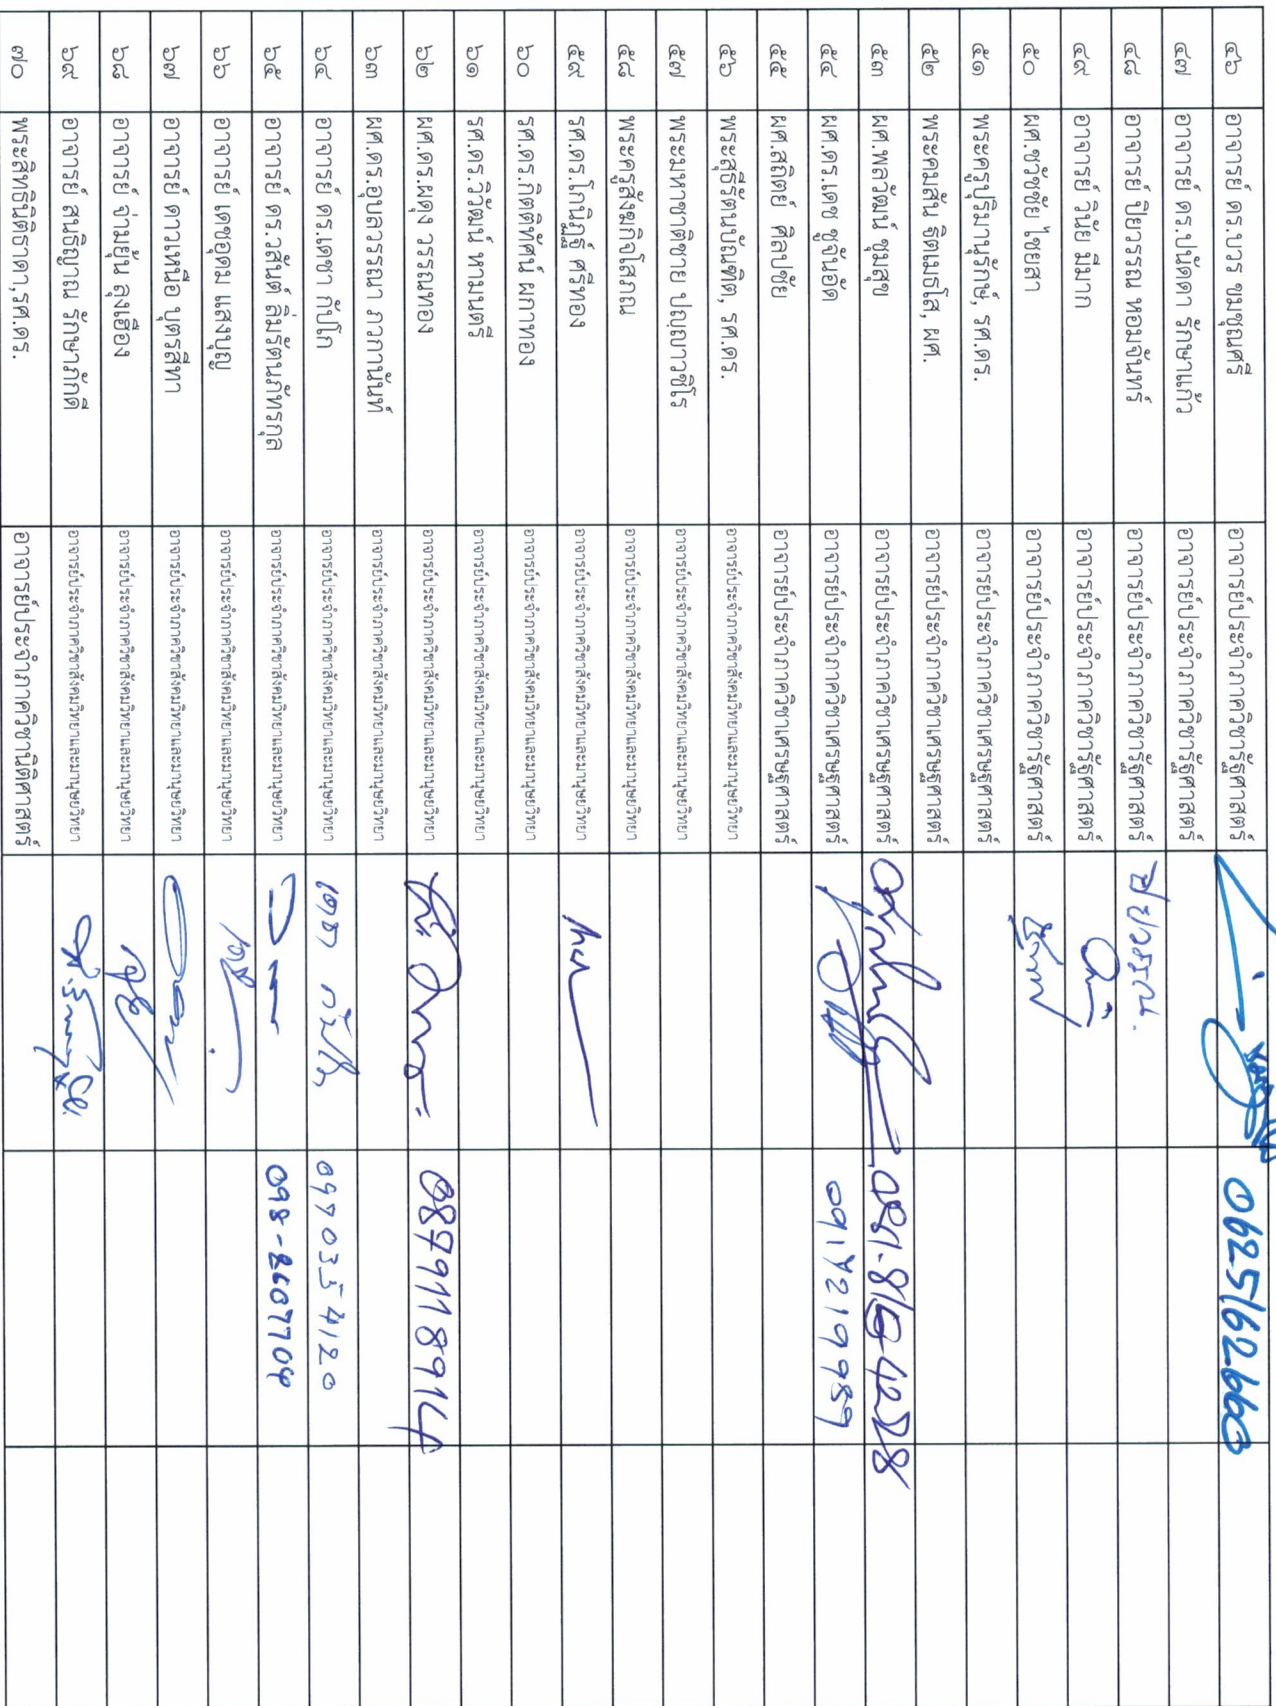 ๔๖ อาจารย์ ดร.บวร ขมชุณศรี อาจารย์ประจำภาควิชารัฐศาสตร์ 0625162663
๔๗ อาจารย์ ดร.ปนัดดา รักษาแก้ว อาจารย์ประจำภาควิชารัฐศาสตร์
๔๘ อาจารย์ ปิยวรรณ หอมจันทร์ อาจารย์ประจำภาควิชารัฐศาสตร์ ปิยวรรณ.
๔๙ อาจารย์ วินัย มีมาก อาจารย์ประจำภาควิชารัฐศาสตร์
๕๐ ผศ.ชวัชชัย ไชยสา อาจารย์ประจำภาควิชารัฐศาสตร์
๕๑ พระครูปริมานุรักษ์, รศ.ดร. อาจารย์ประจำภาควิชาเศรษฐศาสตร์
๕๒ พระคมสัน ฐิตเมธโส, ผศ. อาจารย์ประจำภาควิชาเศรษฐศาสตร์
๕๓ ผศ.พลวัฒน์ ชุมสุข อาจารย์ประจำภาควิชาเศรษฐศาสตร์
๕๔ ผศ.ดร.เดช ชูจันอัด อาจารย์ประจำภาควิชาเศรษฐศาสตร์ 0917219989
๕๕ ผศ.สถิตย์ ศิลปชัย อาจารย์ประจำภาควิชาเศรษฐศาสตร์
๕๖ พระสุธีรัตนบัณฑิต, รศ.ดร. อาจารย์ประจำภาควิชาสังคมวิทยาและมานุษยวิทยา
๕๗ พระมหาชาติชาย ปญฺญาวชิโร อาจารย์ประจำภาควิชาสังคมวิทยาและมานุษยวิทยา
๕๘ พระครูสังฆกิจโสภณ อาจารย์ประจำภาควิชาสังคมวิทยาและมานุษยวิทยา
๕๙ รศ.ดร.โกนิฏฐ์ ศรีทอง อาจารย์ประจำภาควิชาสังคมวิทยาและมานุษยวิทยา
๖๐ รศ.ดร.กิตติทัศน์ ผกาทอง อาจารย์ประจำภาควิชาสังคมวิทยาและมานุษยวิทยา
๖๑ รศ.ดร.วิวัฒน์ หามนตรี อาจารย์ประจำภาควิชาสังคมวิทยาและมานุษยวิทยา
๖๒ ผศ.ดร.ผดุง วรรณทอง อาจารย์ประจำภาควิชาสังคมวิทยาและมานุษยวิทยา 0879118914
๖๓ ผศ.ดร.อุบลวรรณา ภวกานันท์ อาจารย์ประจำภาควิชาสังคมวิทยาและมานุษยวิทยา
๖๔ อาจารย์ ดร.เดชา กัปโก อาจารย์ประจำภาควิชาสังคมวิทยาและมานุษยวิทยา เดชา กัปโก
๖๕ อาจารย์ ดร.วสันต์ ลิ่มรัตนภัทรกุล อาจารย์ประจำภาควิชาสังคมวิทยาและมานุษยวิทยา
๖๖ อาจารย์ เดชอุดม แสงบุญ อาจารย์ประจำภาควิชาสังคมวิทยาและมานุษยวิทยา
๖๗ อาจารย์ ดาวเหนือ บุตรสีทา อาจารย์ประจำภาควิชาสังคมวิทยาและมานุษยวิทยา
๖๘ อาจารย์ จ่ามยุ้น ลุงเฮือง อาจารย์ประจำภาควิชาสังคมวิทยาและมานุษยวิทยา
๖๙ อาจารย์ สนธิญาณ รักษาภักดี อาจารย์ประจำภาควิชาสังคมวิทยาและมานุษยวิทยา
๗๐ พระสิทธินิติธาดา,รศ.ดร. อาจารย์ประจำภาควิชานิติศาสตร์